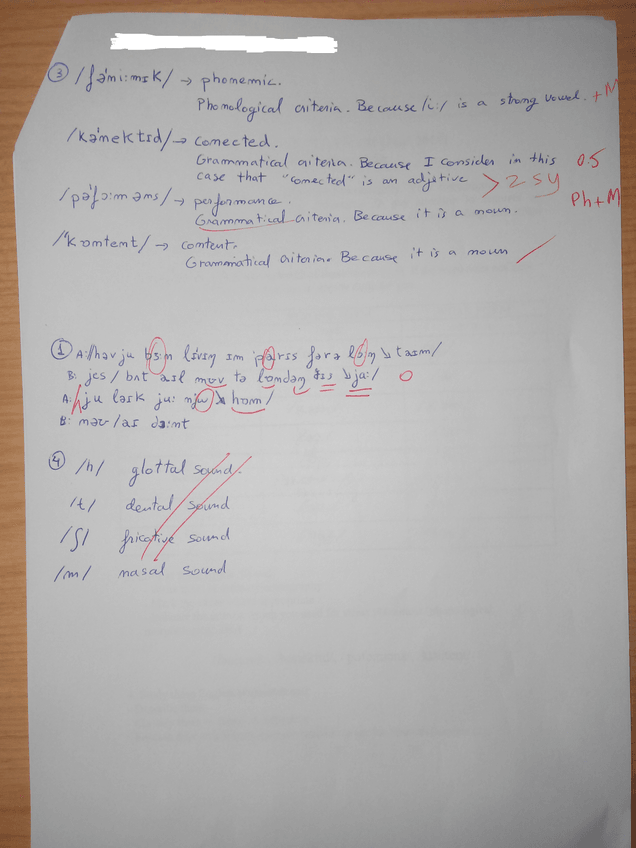 ③ /fə'ni:mɪk/ → phonemic.
Phonological criteria. Because /i:/ is a strong vowel. +M
/kə'nektɪd/ → conected.
Grammatical criteria. Because I consider in this 05
case that "conected" is an adjetive > 2 SY
/pə'fɔ:məns/ → performance.
Grammatical criteria. Because it is a noun. Ph+M
/'kɒntent/ → content.
Grammatical criteria. Because it is a noun
① A: //həv ju bɜ:n lɪvɪŋ ɪn 'pærɪs fərə lɒŋ ↘taɪm/
B: jes / bʌt aɪl mov tə lɒndən ðɪs ↘ja:/ 0
A: h ju laɪk ju: njw ↘ hɒm/
B: nəʊ /aɪ dɜ:nt
④ /h/ glottal sound.
/t/ dental sound
/ʃ/ fricative sound
/m/ nasal sound